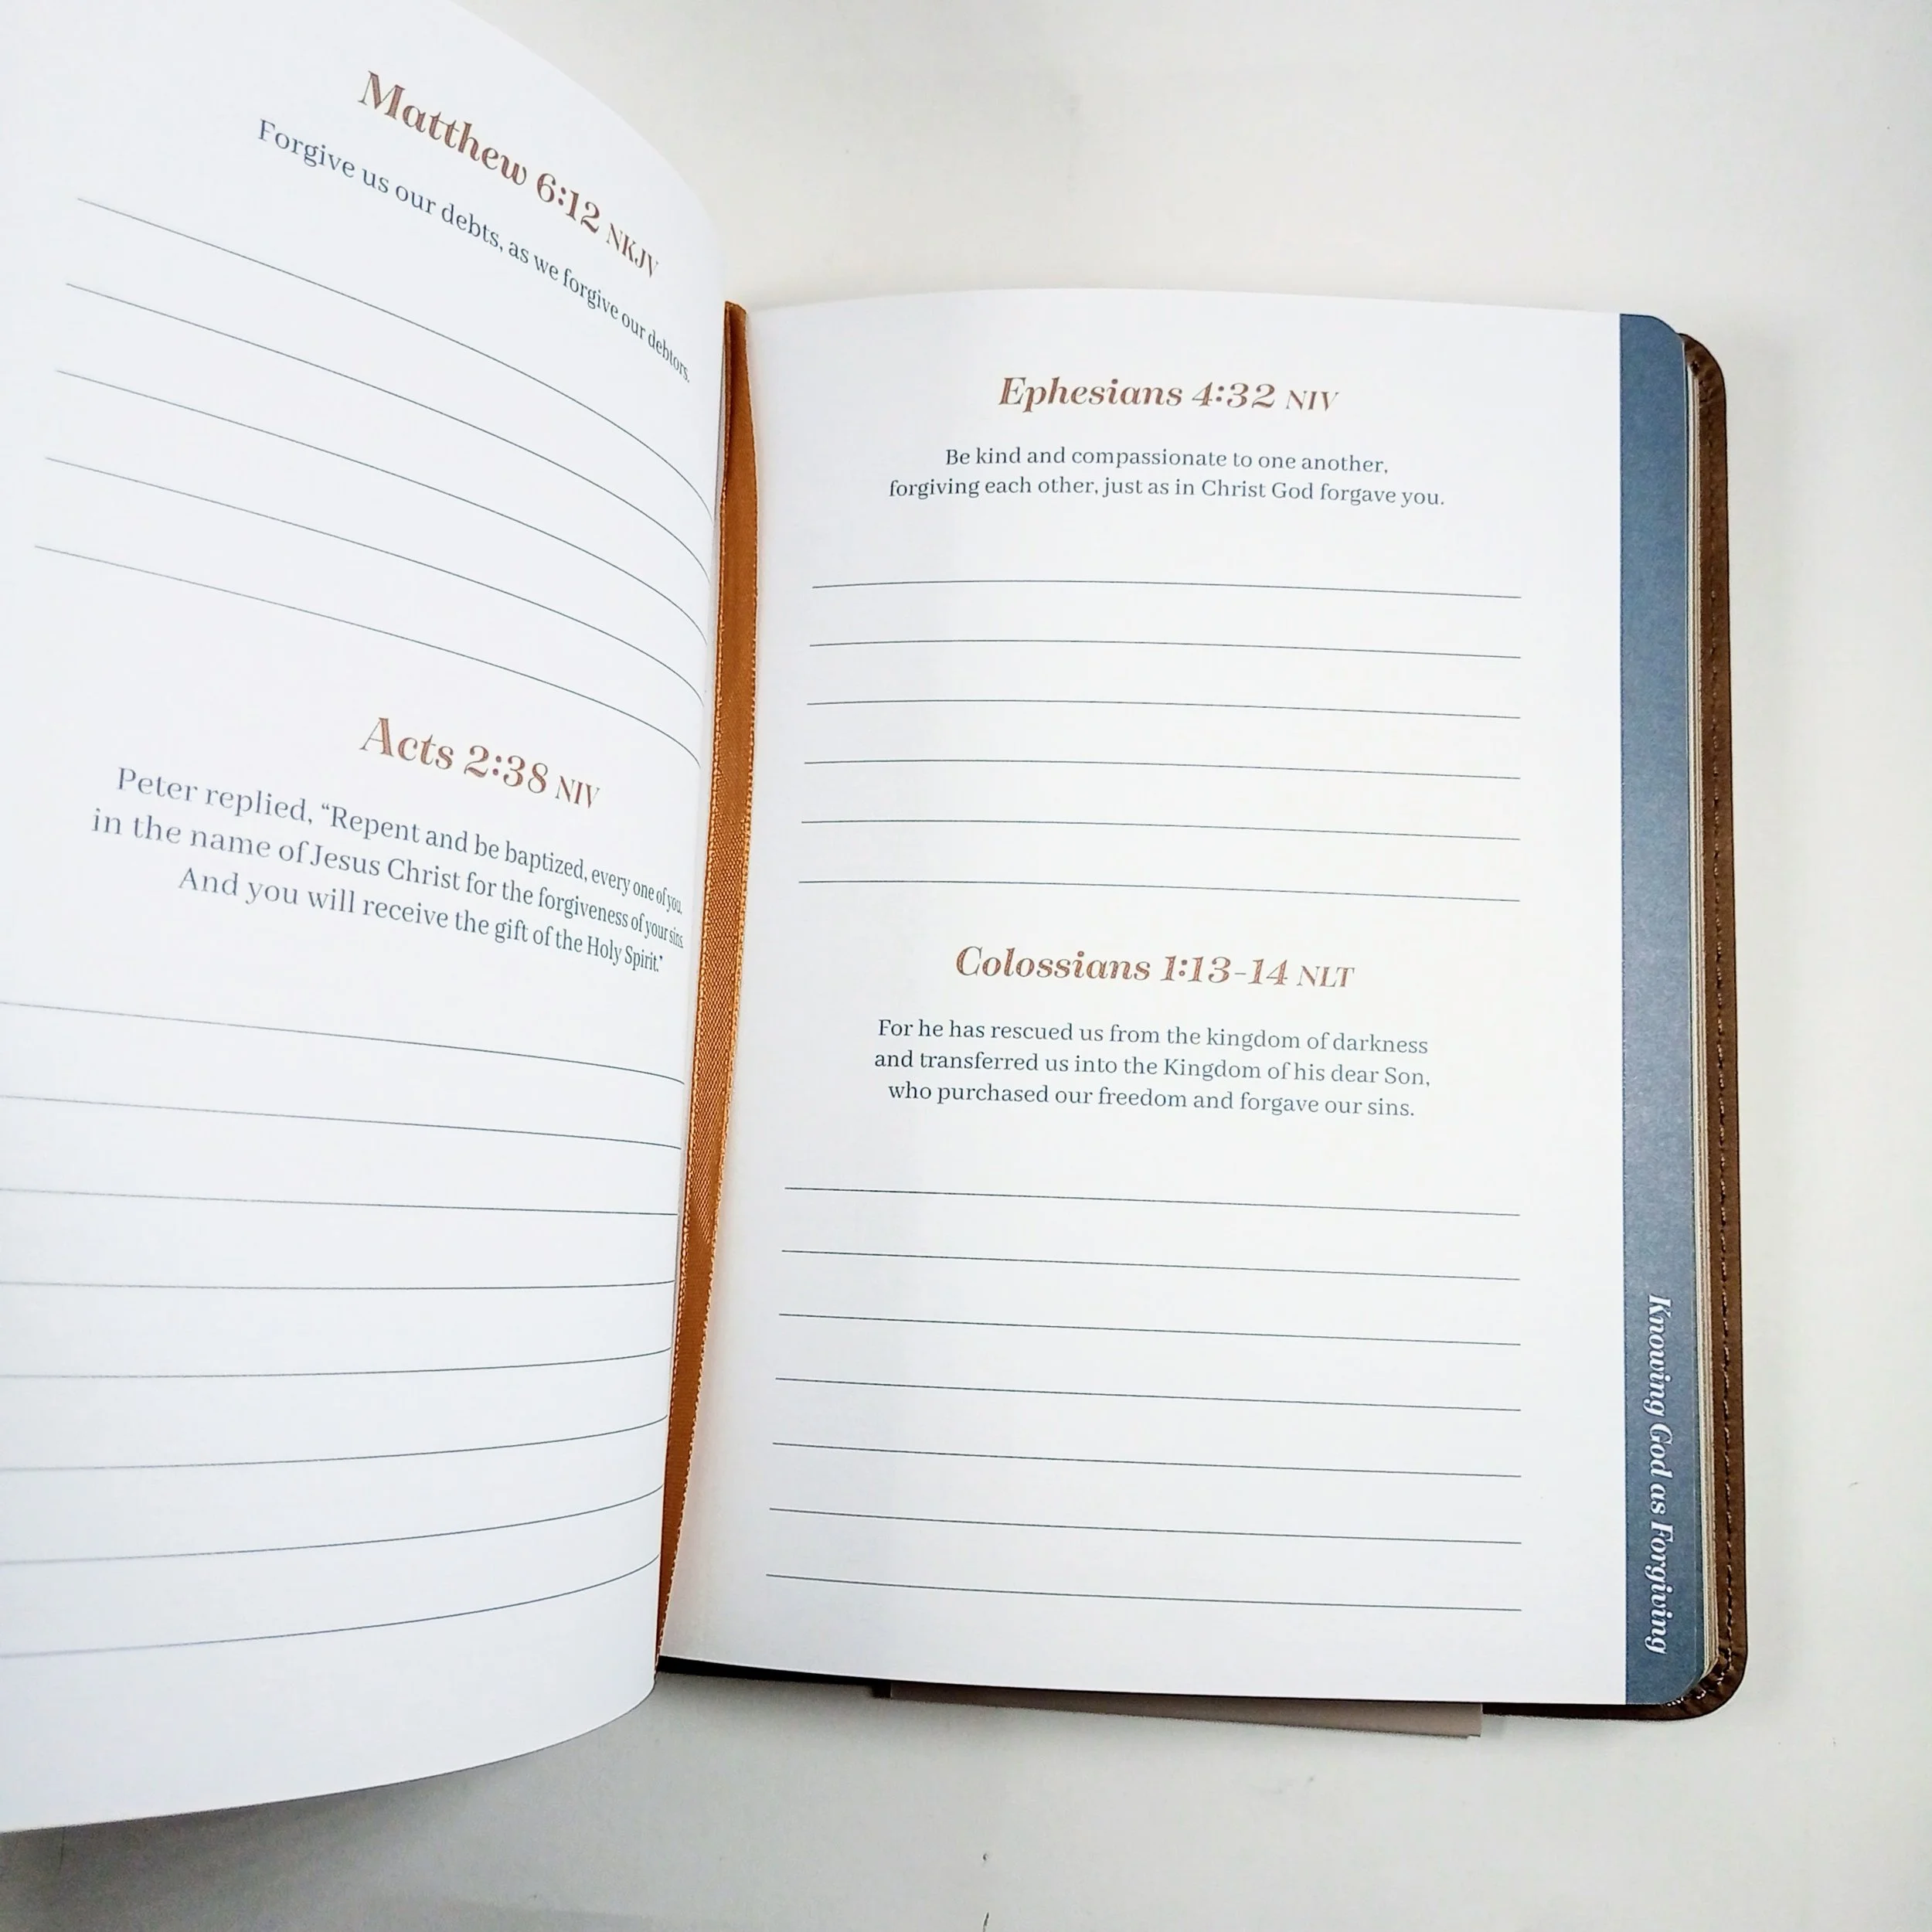 Matthew 6:12 NKJV
Forgive us our debts, as we forgive our debtors.
Acts 2:38 NIV
Peter replied, “Repent and be baptized, every one of you,
in the name of Jesus Christ for the forgiveness of your sins.
And you will receive the gift of the Holy Spirit.”
Ephesians 4:32 NIV
Be kind and compassionate to one another,
forgiving each other, just as in Christ God forgave you.
Colossians 1:13-14 NLT
For he has rescued us from the kingdom of darkness
and transferred us into the Kingdom of his dear Son,
who purchased our freedom and forgave our sins.
Knowing God as Forgiving